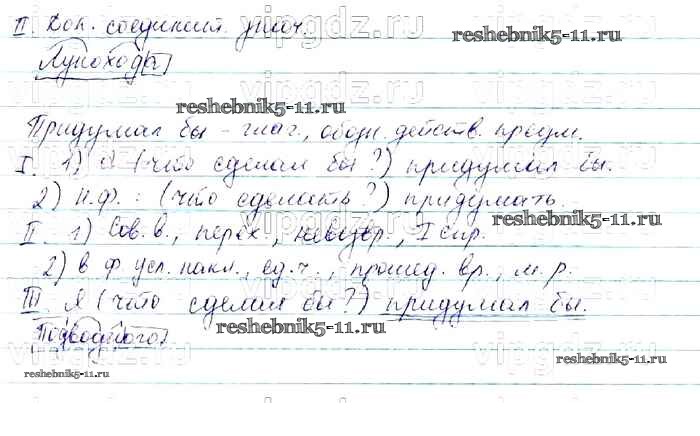 II. Доп. соединит. знач.
reshebnik5-11.ru
Лунохода
reshebnik5-11.ru
Придумал бы – глаг., обозн. действ. предм.
I. 1) Я (что сделал бы?) придумал бы.
2) Н.ф.: (что сделать?) придумать.
reshebnik5-11.ru
II. 1) Сов.в., перех., невозвр., I спр.
2) в ф. усл. накл., ед.ч., прошед. вр., м.р.
III. Я (что сделал бы?) придумал бы.
Подводного
reshebnik5-11.ru
reshebnik5-11.ru